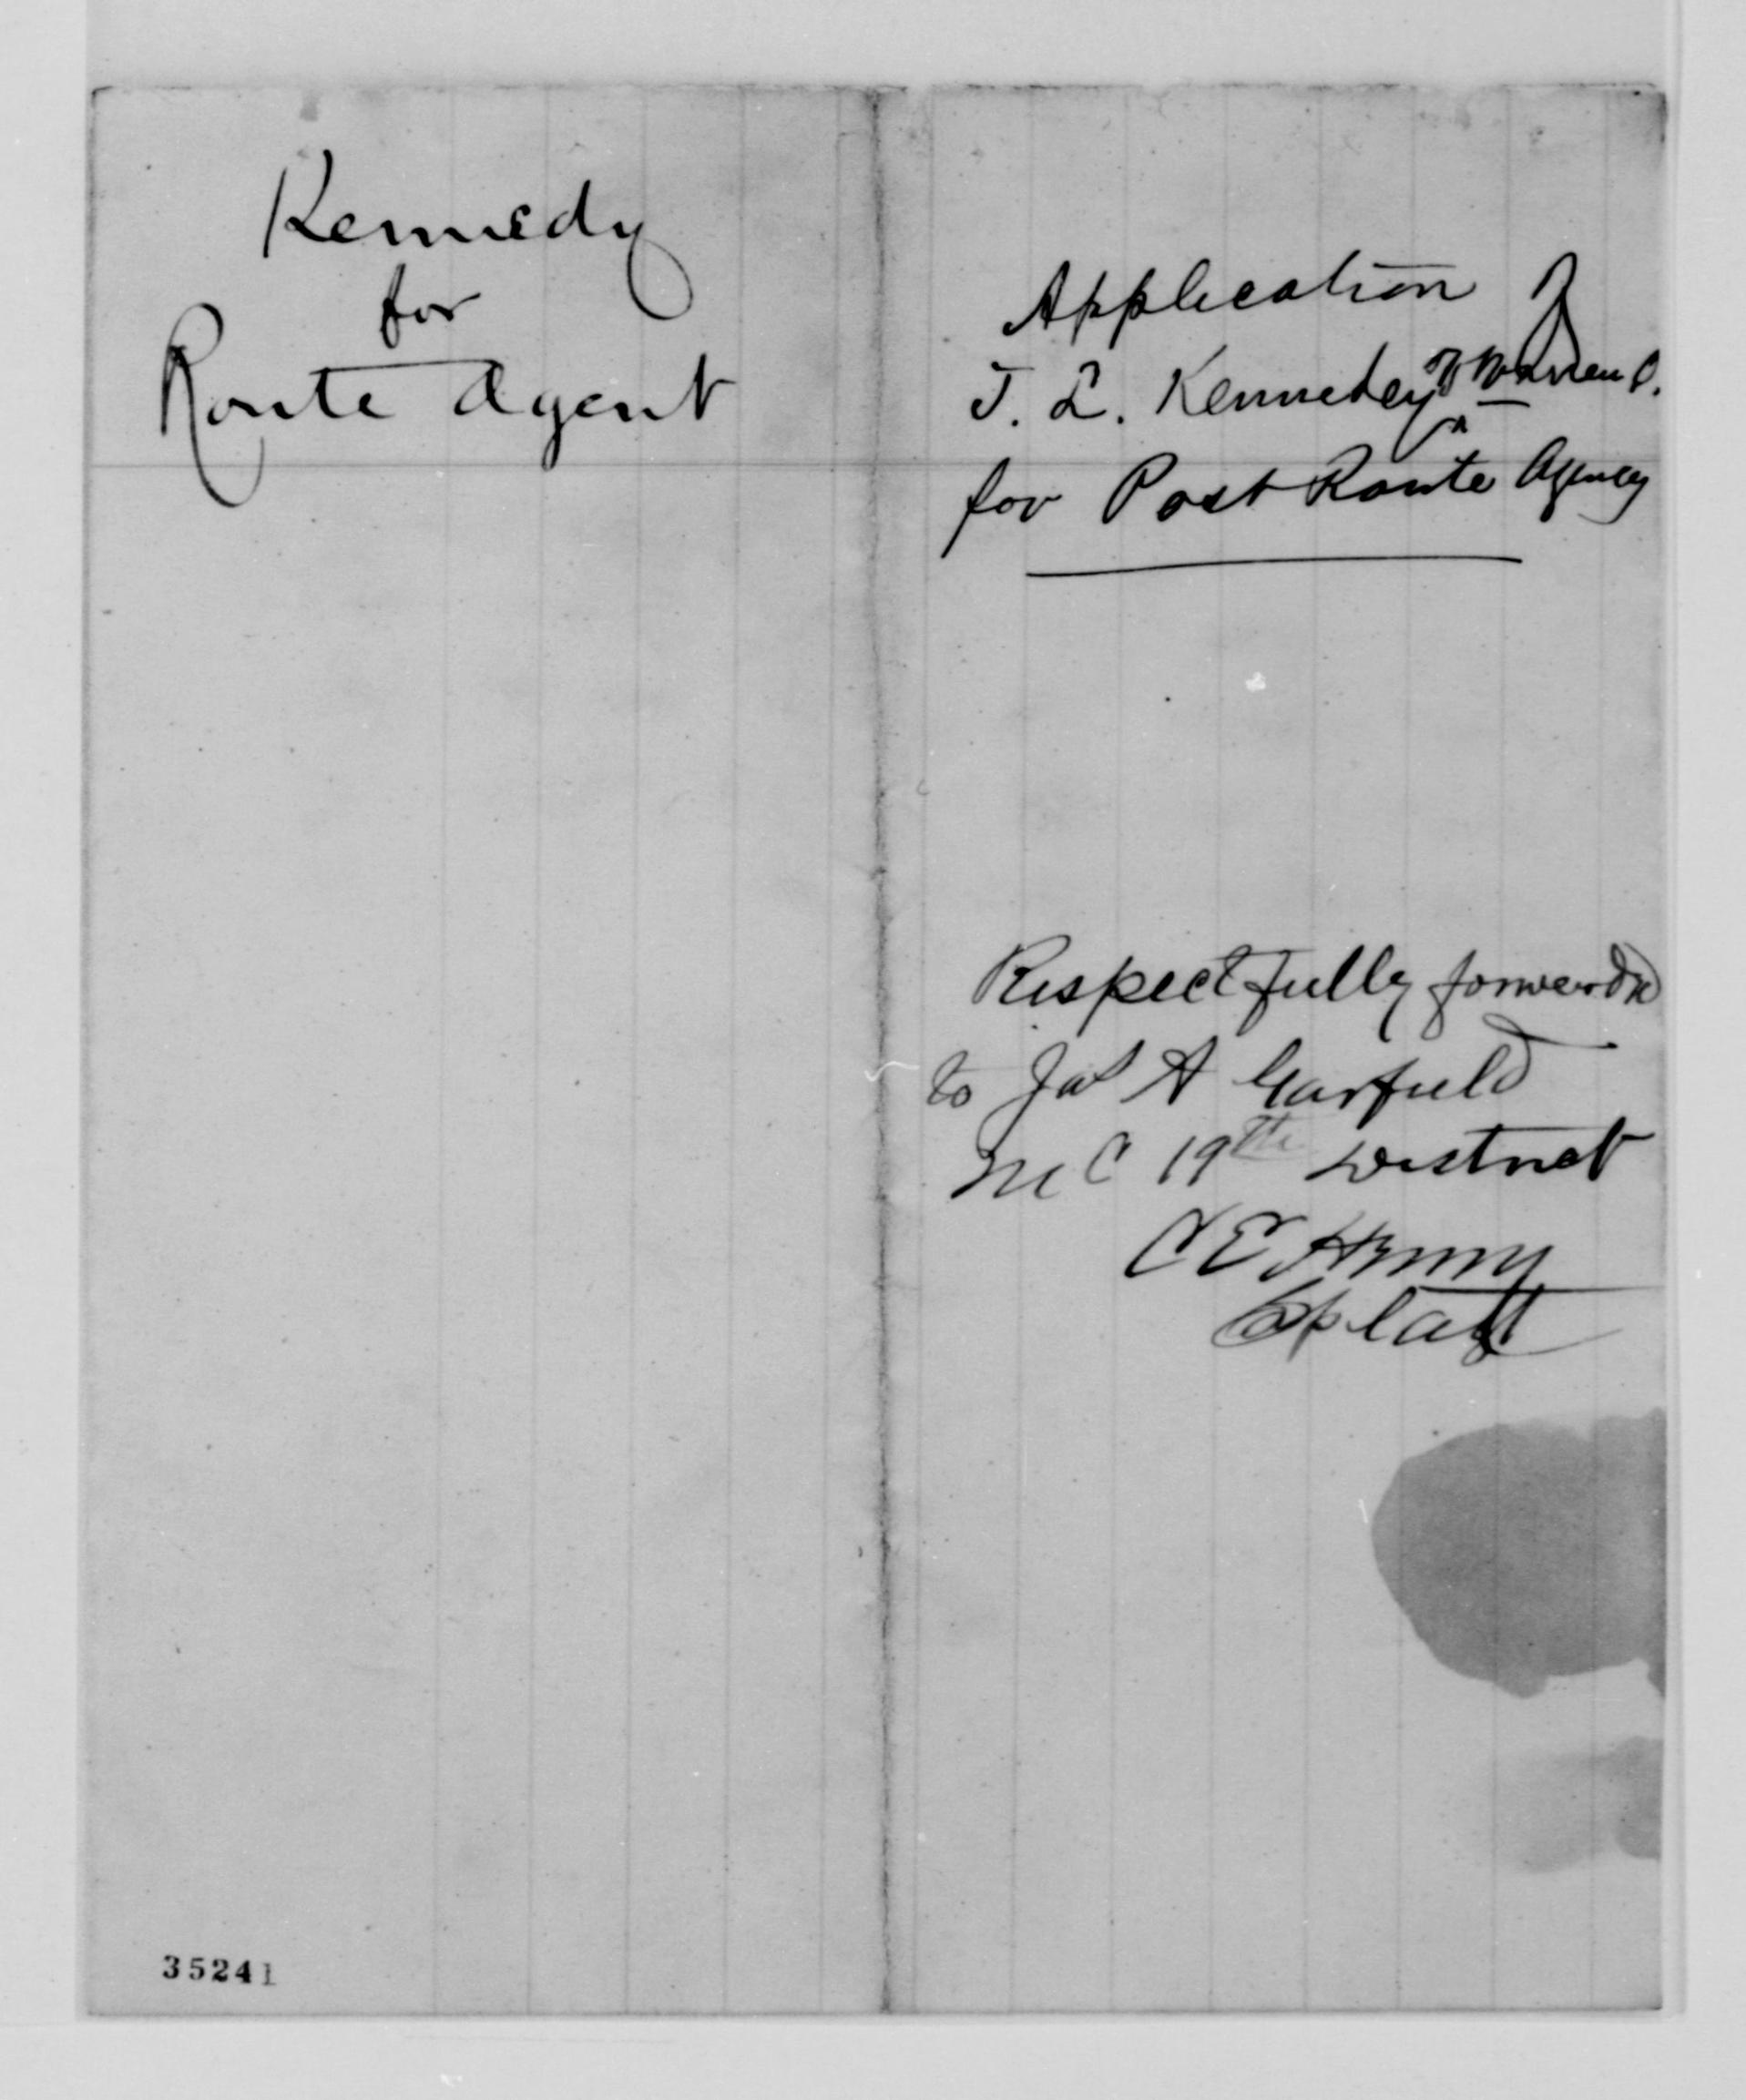 Kennedy
for
Route Agent
Application of
T. L. Kennedey of Warren O.
for Post Route Agency
Respectfully forwarded
to Jas A Garfield
M C 19th District
C E Henry
35241